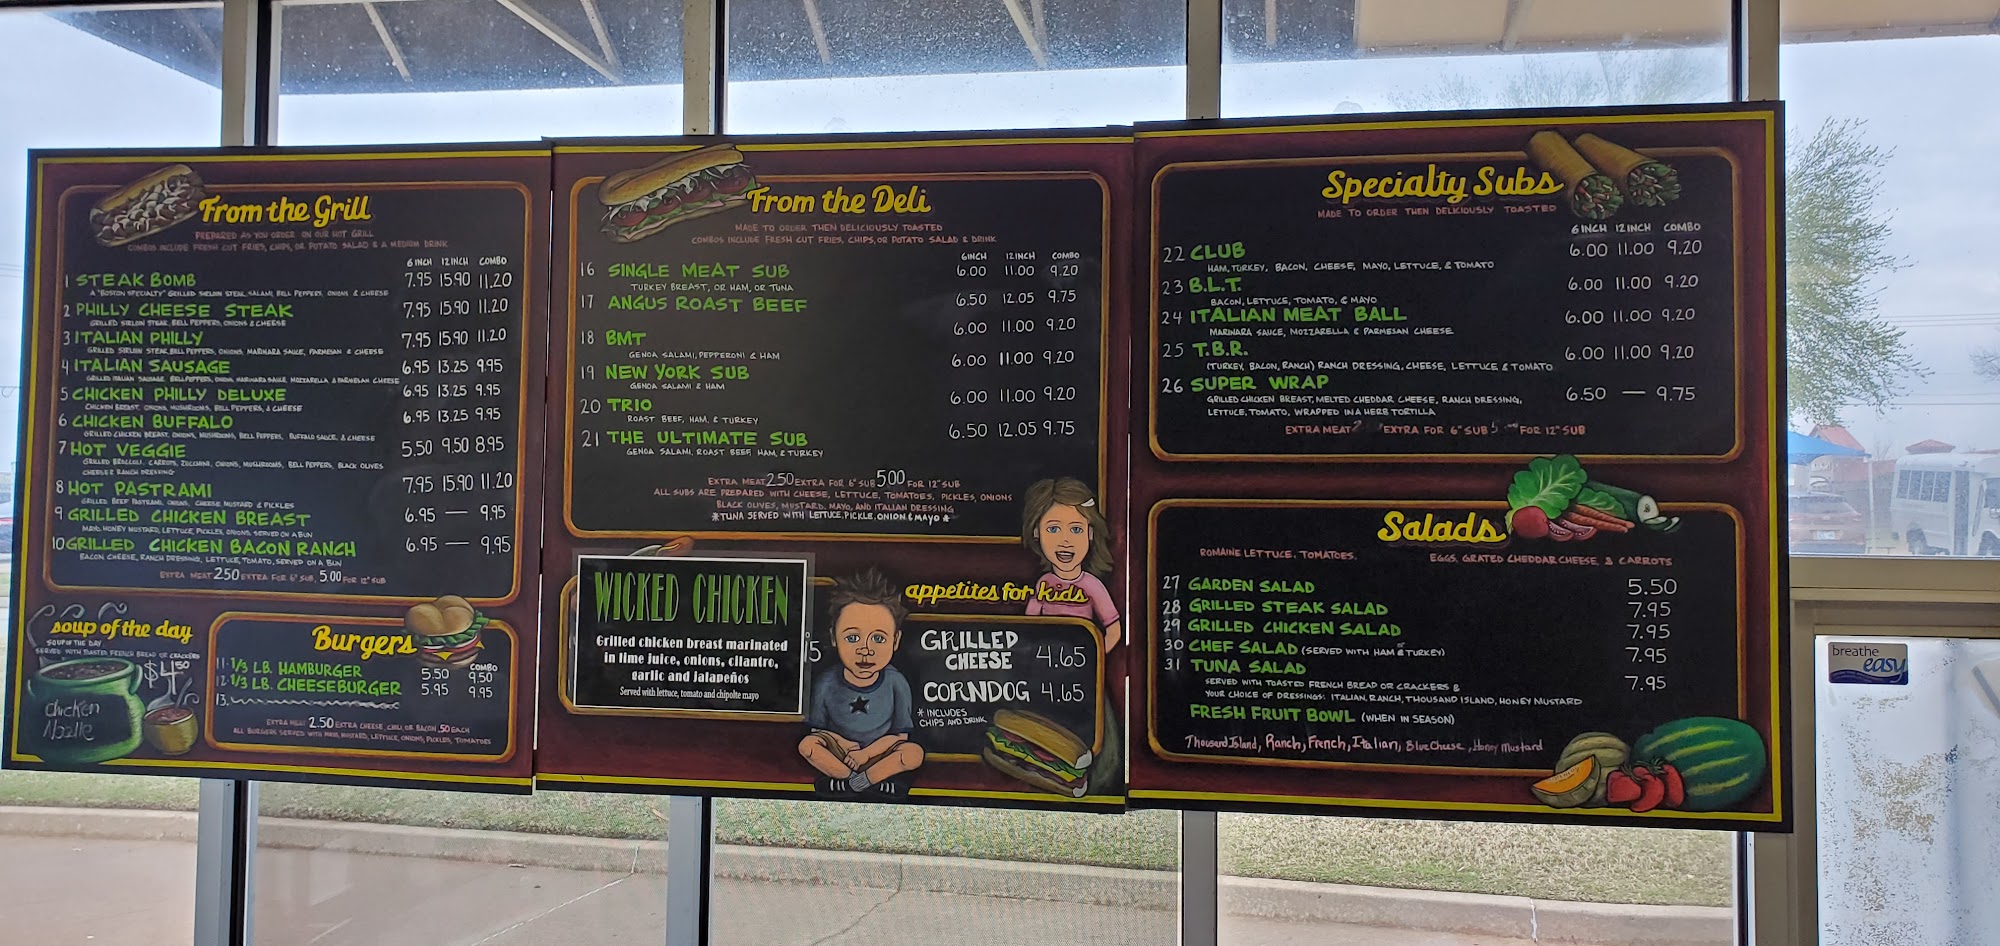 From the Grill
PREPARED AS YOU ORDER ON OUR HOT GRILL
COMBOS INCLUDE FRESH CUT FRIES, CHIPS, OR POTATO SALAD & A MEDIUM DRINK
6 INCH 12 INCH COMBO
1 STEAK BOMB 7.95 15.90 11.20
A "BOSTON SPECIALTY" GRILLED SIRLOIN STEAK, SALAMI, BELL PEPPERS, ONIONS & CHEESE
2 PHILLY CHEESE STEAK 7.95 15.90 11.20
GRILLED SIRLOIN STEAK, BELL PEPPERS, ONIONS & CHEESE
3 ITALIAN PHILLY 7.95 15.90 11.20
GRILLED SIRLOIN STEAK, BELL PEPPERS, ONIONS, MARINARA SAUCE, PARMESAN & CHEESE
4 ITALIAN SAUSAGE 6.95 13.25 9.95
GRILLED ITALIAN SAUSAGE, BELL PEPPERS, ONION, MARINARA SAUCE, MOZZARELLA & PARMESAN CHEESE
5 CHICKEN PHILLY DELUXE 6.95 13.25 9.95
CHICKEN BREAST, ONIONS, MUSHROOMS, BELL PEPPERS, & CHEESE
6 CHICKEN BUFFALO 6.95 13.25 9.95
GRILLED CHICKEN BREAST, ONIONS, MUSHROOMS, BELL PEPPERS, BUFFALO SAUCE, & CHEESE
7 HOT VEGGIE 5.50 9.50 8.95
GRILLED BROCCOLI, CARROTS, ZUCCHINI, ONIONS, MUSHROOMS, BELL PEPPERS, BLACK OLIVES
CHEESE & RANCH DRESSING
8 HOT PASTRAMI 7.95 15.90 11.20
GRILLED BEEF PASTRAMI, ONIONS, CHEESE, MUSTARD & PICKLES
9 GRILLED CHICKEN BREAST 6.95 — 9.95
MAYO, HONEY MUSTARD, LETTUCE, PICKLES, ONIONS, SERVED ON A BUN
10 GRILLED CHICKEN BACON RANCH 6.95 — 9.95
BACON, CHEESE, RANCH DRESSING, LETTUCE, TOMATO, SERVED ON A BUN
EXTRA MEAT 2.50 EXTRA FOR 6" SUB, 5.00 FOR 12" SUB
soup of the day
SOUP OF THE DAY
SERVED WITH TOASTED FRENCH BREAD OR CRACKERS
$4.50
Chicken
Noodle
Burgers
COMBO
11. 1/3 LB. HAMBURGER 5.50 9.50
12 1/3 LB. CHEESEBURGER 5.95 9.95
13.
EXTRA MEAT 2.50 EXTRA CHEESE, CHILI OR BACON .50 EACH
ALL BURGERS SERVED WITH MAYO, MUSTARD, LETTUCE, ONIONS, PICKLES, TOMATOES
From the Deli
MADE TO ORDER THEN DELICIOUSLY TOASTED
COMBOS INCLUDE FRESH CUT FRIES, CHIPS, OR POTATO SALAD & DRINK
6INCH 12INCH COMBO
16 SINGLE MEAT SUB 6.00 11.00 9.20
TURKEY BREAST, OR HAM, OR TUNA
17 ANGUS ROAST BEEF 6.50 12.05 9.75
18 BMT 6.00 11.00 9.20
GENOA SALAMI, PEPPERONI & HAM
19 NEW YORK SUB 6.00 11.00 9.20
GENOA SALAMI & HAM
20 TRIO 6.00 11.00 9.20
ROAST BEEF, HAM, & TURKEY
21 THE ULTIMATE SUB 6.50 12.05 9.75
GENOA SALAMI, ROAST BEEF, HAM, & TURKEY
EXTRA MEAT 2.50 EXTRA FOR 6" SUB 5.00 FOR 12" SUB
ALL SUBS ARE PREPARED WITH CHEESE, LETTUCE, TOMATOES, PICKLES, ONIONS
BLACK OLIVES, MUSTARD, MAYO, AND ITALIAN DRESSING
*TUNA SERVED WITH LETTUCE, PICKLE, ONION & MAYO *
WICKED CHICKEN
Grilled chicken breast marinated
in lime juice, onions, cilantro,
garlic and jalapeños
Served with lettuce, tomato and chipolte mayo
appetites for kids
GRILLED
CHEESE 4.65
CORNDOG 4.65
* INCLUDES
CHIPS AND DRINK
Specialty Subs
MADE TO ORDER THEN DELICIOUSLY TOASTED
6 INCH 12 INCH COMBO
22 CLUB 6.00 11.00 9.20
HAM, TURKEY, BACON, CHEESE, MAYO, LETTUCE, & TOMATO
23 B.L.T. 6.00 11.00 9.20
BACON, LETTUCE, TOMATO, & MAYO
24 ITALIAN MEAT BALL 6.00 11.00 9.20
MARINARA SAUCE, MOZZARELLA & PARMESAN CHEESE
25 T.B.R. 6.00 11.00 9.20
(TURKEY, BACON, RANCH) RANCH DRESSING, CHEESE, LETTUCE & TOMATO
26 SUPER WRAP 6.50 — 9.75
GRILLED CHICKEN BREAST, MELTED CHEDDAR CHEESE, RANCH DRESSING,
LETTUCE, TOMATO, WRAPPED IN A HERB TORTILLA
EXTRA MEAT EXTRA FOR 6" SUB FOR 12" SUB
Salads
ROMAINE LETTUCE, TOMATOES, EGGS, GRATED CHEDDAR CHEESE, & CARROTS
27 GARDEN SALAD 5.50
28 GRILLED STEAK SALAD 7.95
29 GRILLED CHICKEN SALAD 7.95
30 CHEF SALAD (SERVED WITH HAM & TURKEY) 7.95
31 TUNA SALAD 7.95
SERVED WITH TOASTED FRENCH BREAD OR CRACKERS &
YOUR CHOICE OF DRESSINGS: ITALIAN, RANCH, THOUSAND ISLAND, HONEY MUSTARD
FRESH FRUIT BOWL (WHEN IN SEASON)
Thousand Island, Ranch, French, Italian, Blue Cheese, Honey Mustard
breathe
easy